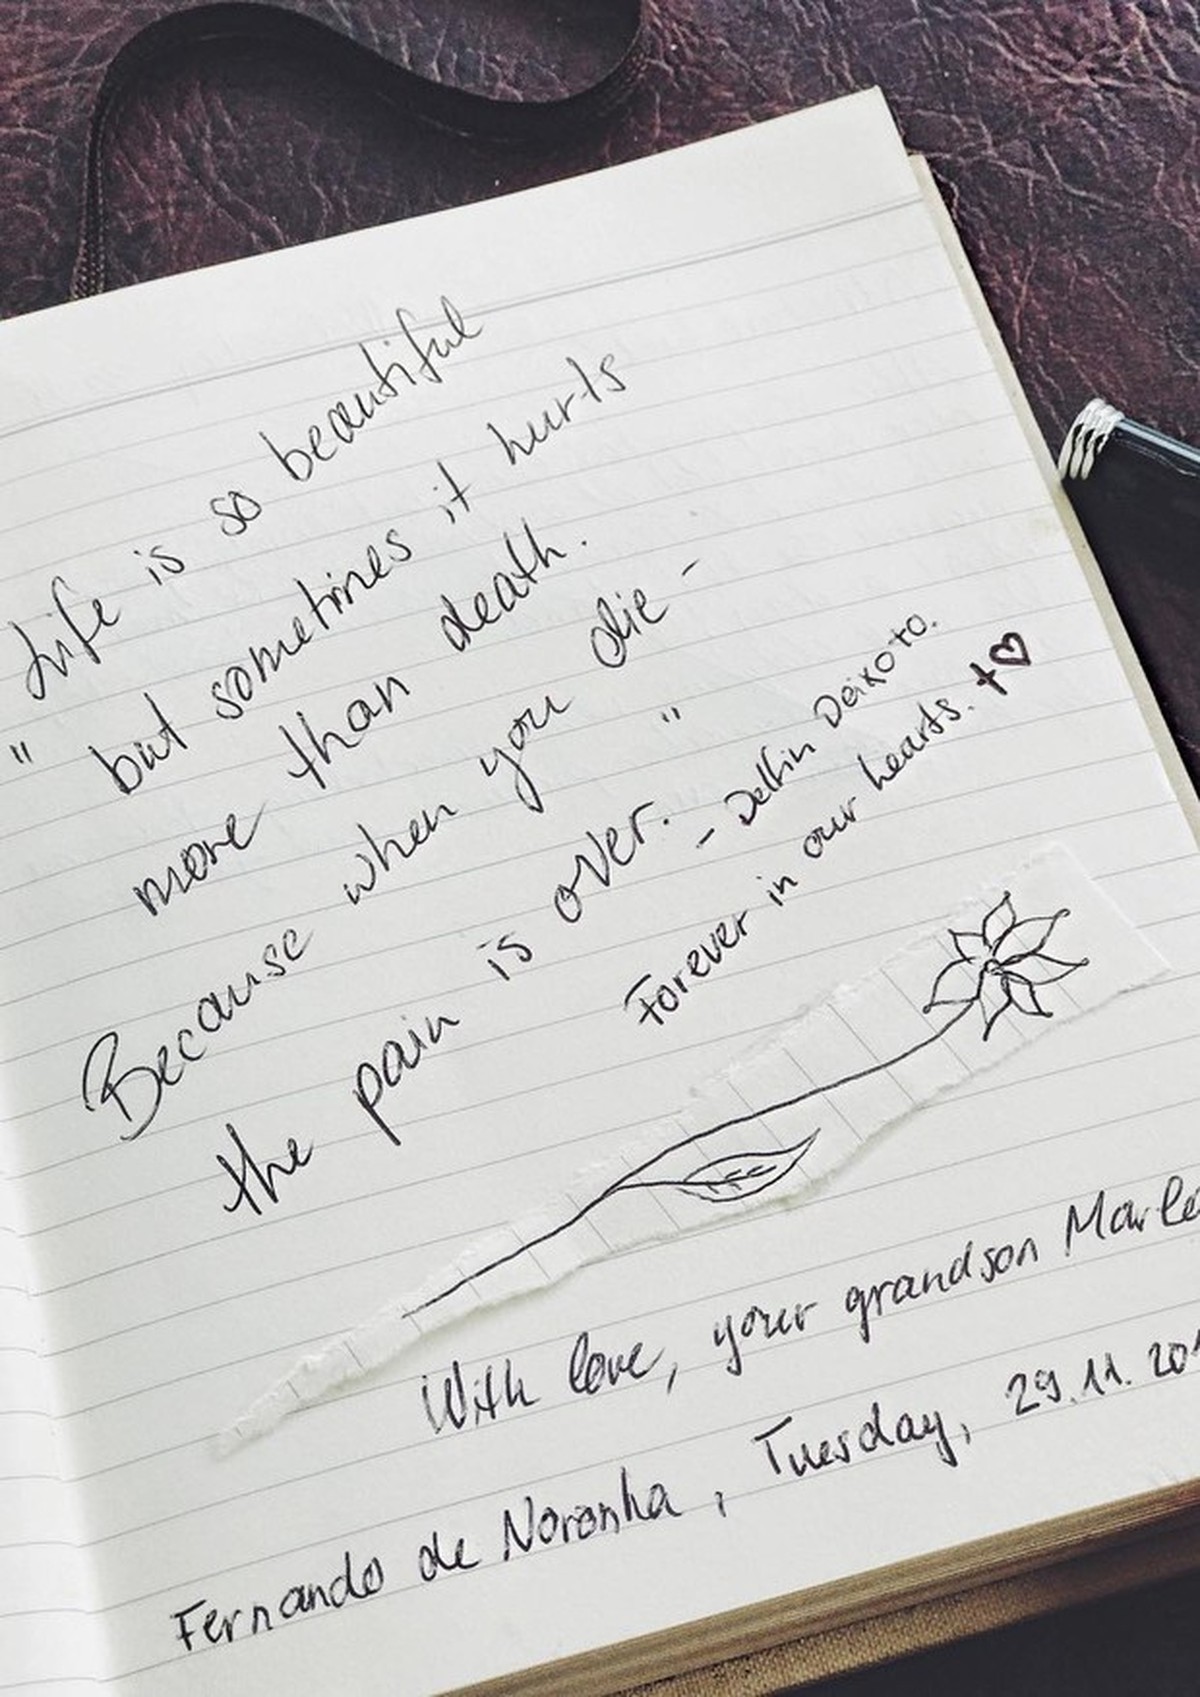 Life is so beautiful
" but sometimes it hurts
more than death.
Because when you die -
the pain is over. "
- Delfin Deixoto.
Forever in our hearts. +♡
With love, your grandson
Fernando de Noronha, Tuesday, 29.11.